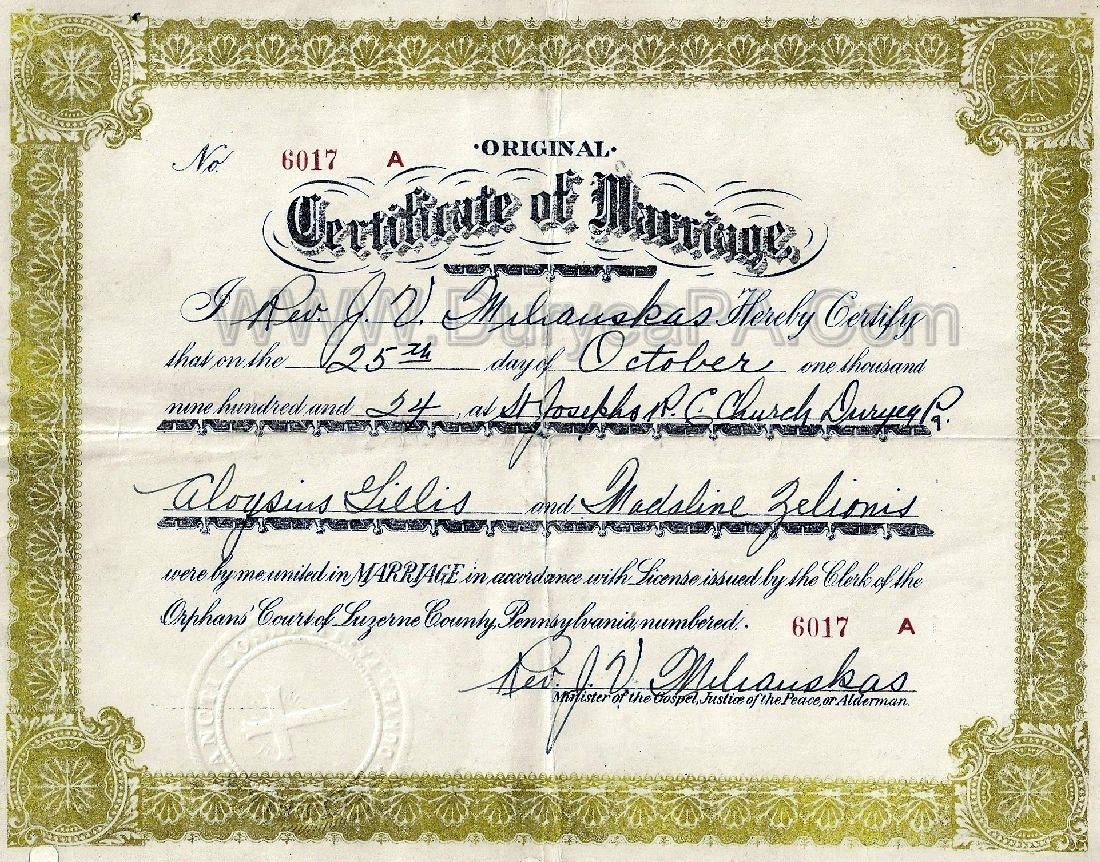 No. 6017 A
·ORIGINAL·
Certificate of Marriage.
WWW.DuryeaPA.Com
I Rev. J. V. Milianskas Hereby Certify
that on the 25th day of October one thousand
nine hundred and 24, at St Josephs R. C. Church Duryea Pa.
Aloysius Gillis and Madaline Zelionis
were by me united in MARRIAGE in accordance with License issued by the Clerk of the
Orphans' Court of Luzerne County, Pennsylvania, numbered. 6017 A
Rev. J. V. Milianskas
Minister of the Gospel, Justice of the Peace, or Alderman.